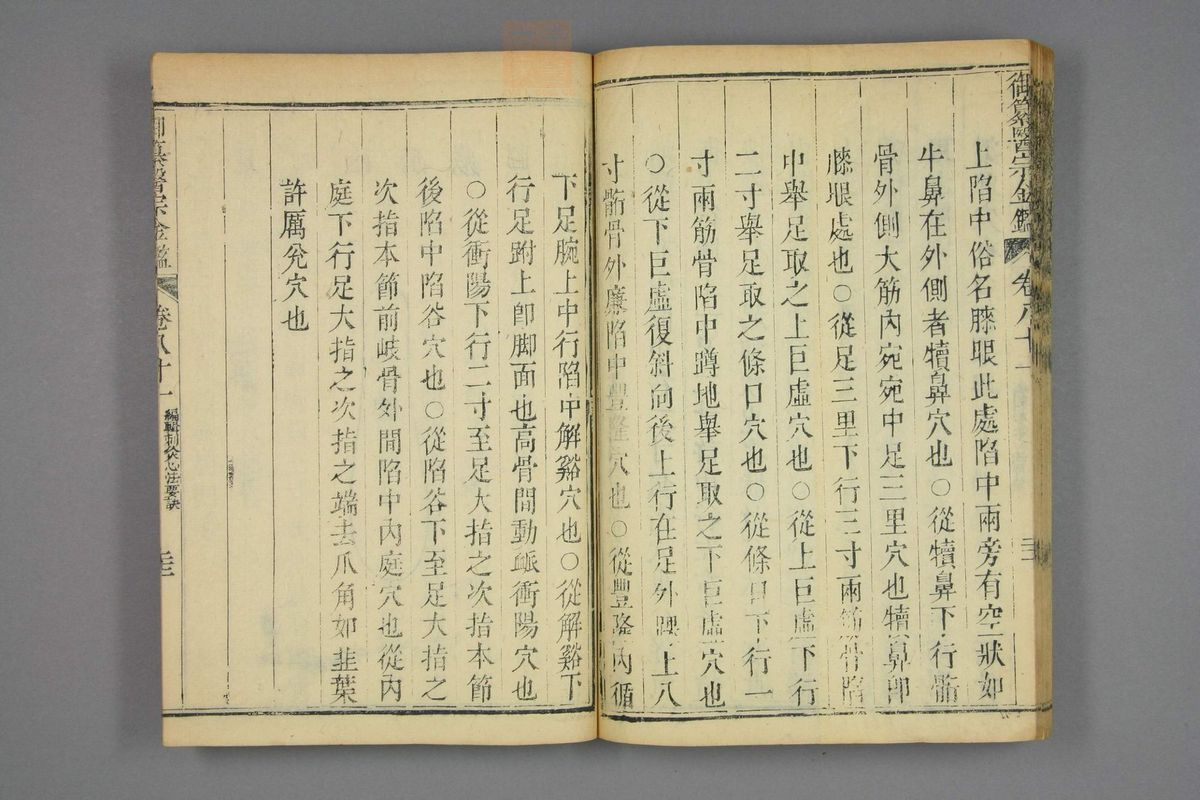 御纂醫宗金鑑 卷八十一
上陷中俗名膝眼此處陷中兩旁有空狀如
牛鼻在外側者犢鼻穴也○從犢鼻下行䯒
骨外側大筋內宛宛中足三里穴也犢鼻即
膝眼處也○從足三里下行三寸兩筋骨陷
中舉足取之上巨虛穴也○從上巨虛下行
二寸舉足取之條口穴也○從條口下行一
寸兩筋骨陷中蹲地舉足取之下巨虛穴也
○從下巨虛復斜向後上行在足外踝上八
寸䯒骨外廉陷中豐隆穴也○從豐隆內循
下足腕上中行陷中解谿穴也○從解谿下
行足跗上卽脚面也高骨間動䘑衝陽穴也
○從衝陽下行二寸至足大指之次指本節
後陷中陷谷穴也○從陷谷下至足大指之
次指本節前岐骨外間陷中內庭穴也從內
庭下行足大指之次指之端去爪角如韮葉
許厲兊穴也
御纂醫宗金鑑 卷八十一 編輯刺灸心法要訣